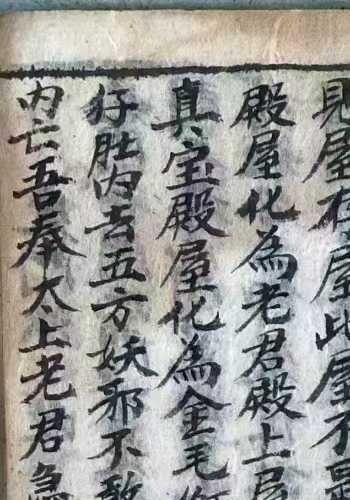 見屋在屋此屋不是
殿屋化為老君殿上屋
真宝殿屋化為金毛
仔肚内去五方妖邪不敢
内亡吾奉太上老君急